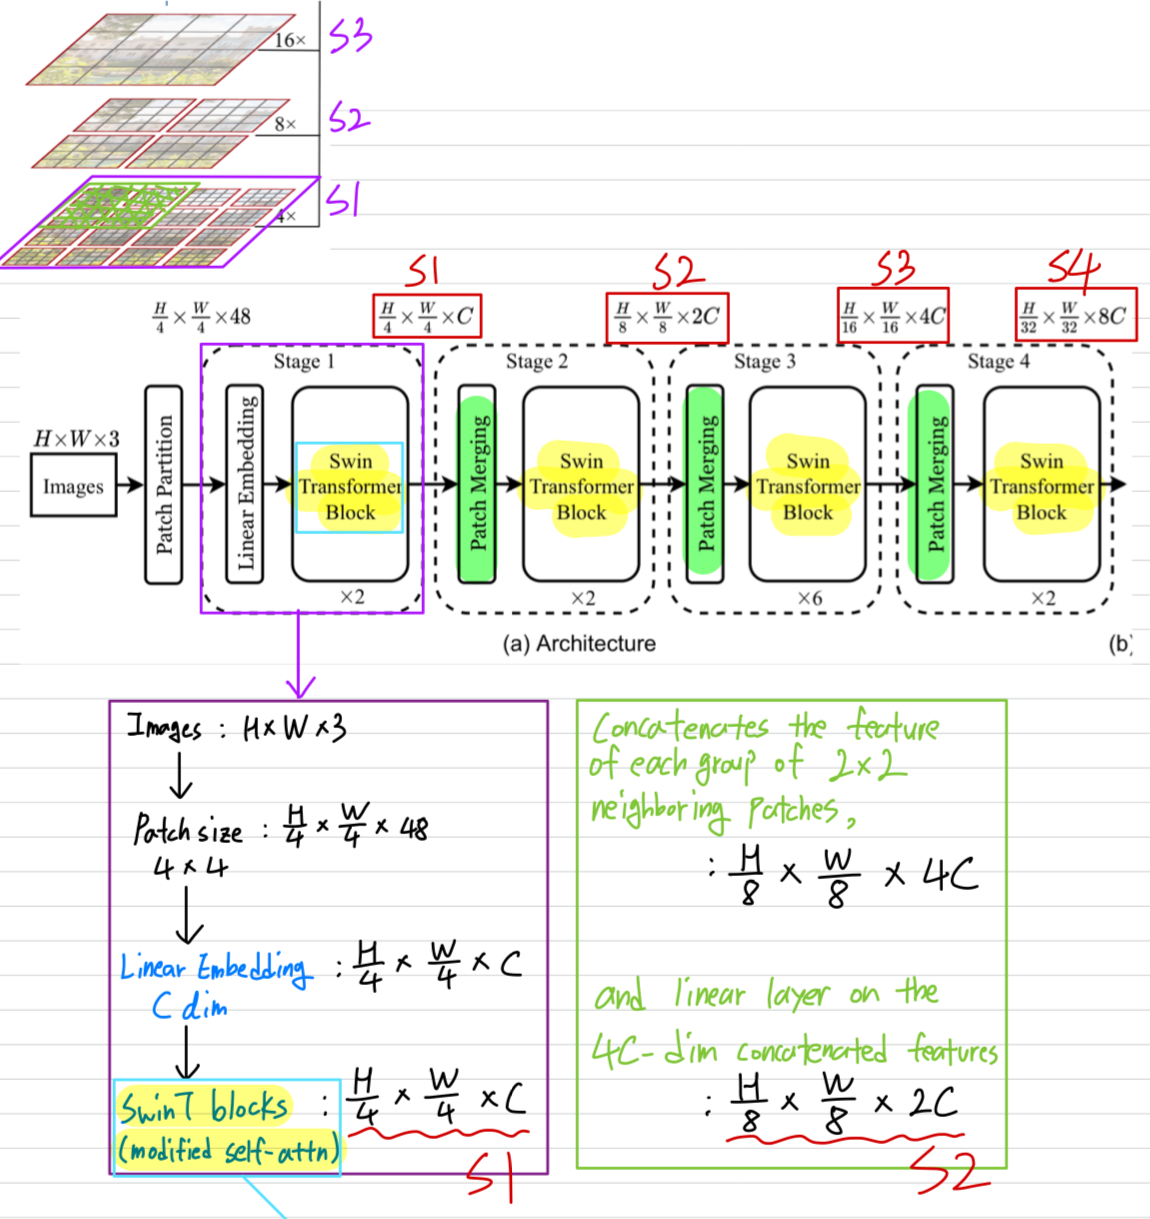 16× S3
8× S2
4× S1
S1 S2 S3 S4
H/4 × W/4 × 48 H/4 × W/4 × C H/8 × W/8 × 2C H/16 × W/16 × 4C H/32 × W/32 × 8C
Stage 1 Stage 2 Stage 3 Stage 4
H×W×3
Images
Patch Partition
Linear Embedding
Swin
Transformer
Block
×2
Patch Merging
Swin
Transformer
Block
×2
Patch Merging
Swin
Transformer
Block
×6
Patch Merging
Swin
Transformer
Block
×2
(a) Architecture (b)
Images : H×W×3
Patch size : H/4 × W/4 × 48
4×4
Linear Embedding : H/4 × W/4 × C
C dim
SwinT blocks : H/4 × W/4 × C
(modified self-attn)
S1
Concatenates the feature
of each group of 2×2
neighboring patches,
: H/8 × W/8 × 4C
and linear layer on the
4C-dim concatenated features
: H/8 × W/8 × 2C
S2